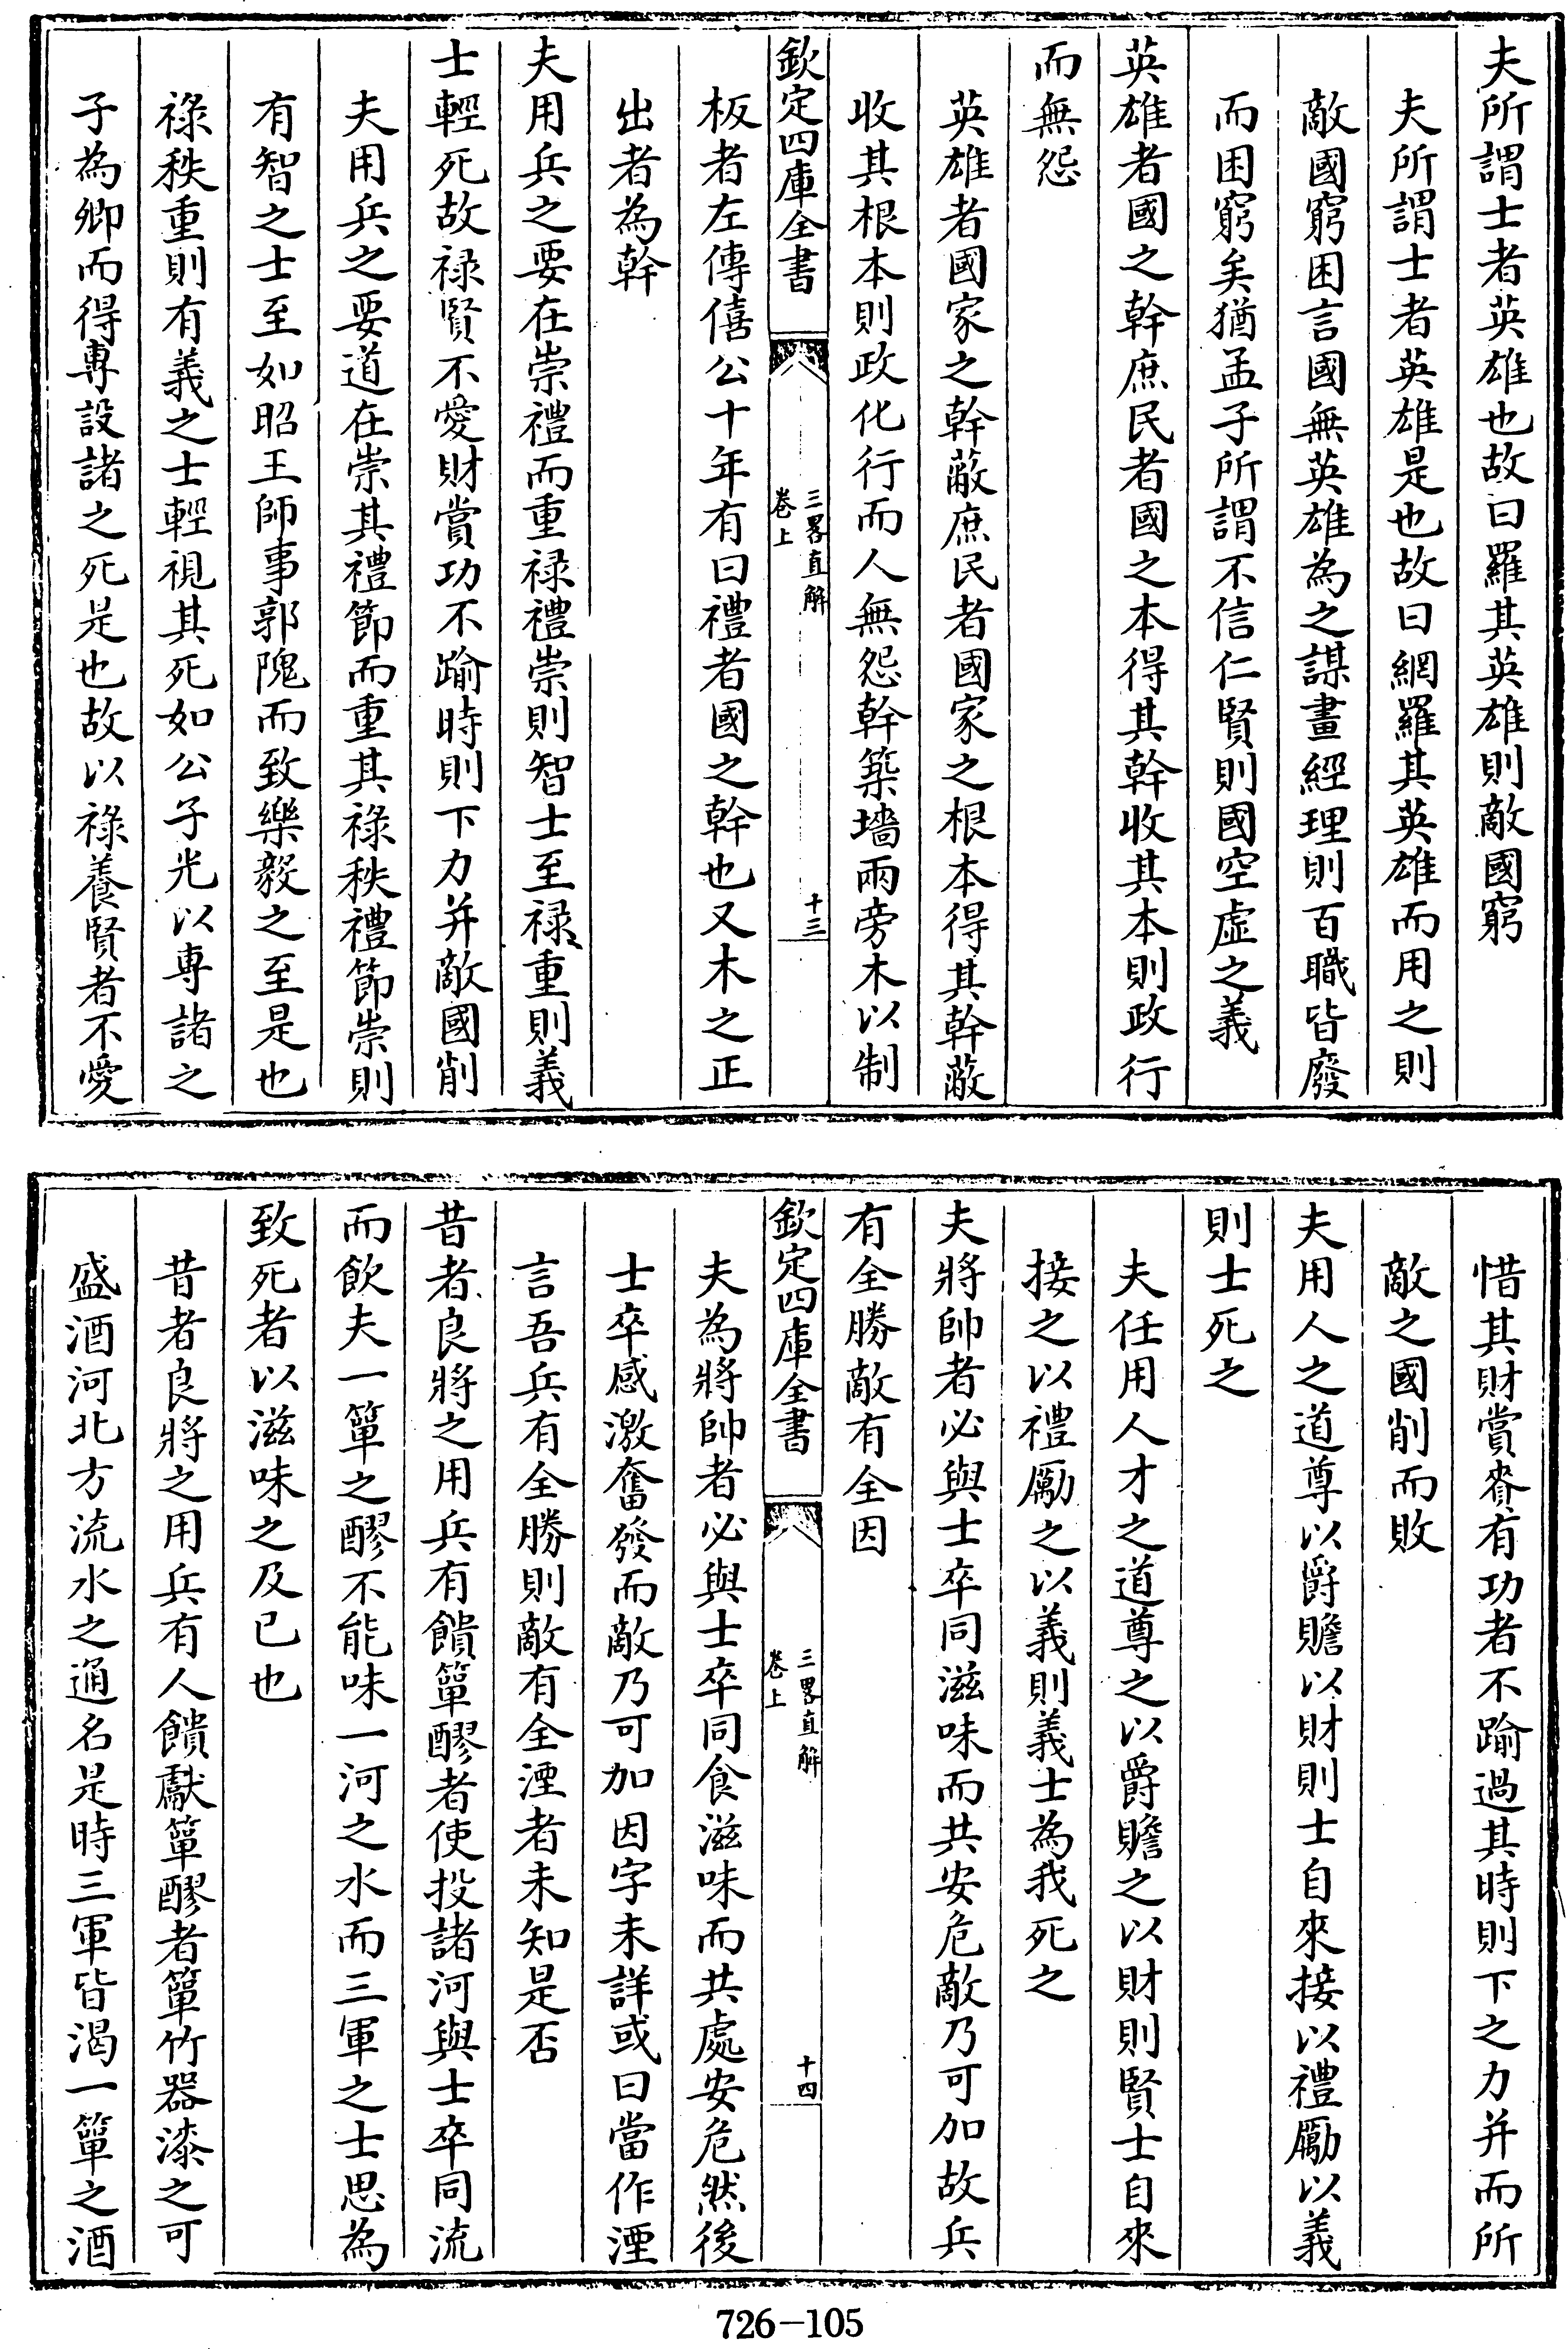 夫所謂士者英雄也故曰羅其英雄則敵國窮
夫所謂士者英雄是也故曰網羅其英雄而用之則
敵國窮困言國無英雄為之謀畫經理則百職皆廢
而困窮矣猶孟子所謂不信仁賢則國空虛之義
英雄者國之幹庶民者國之本得其幹收其本則政行
而無怨
英雄者國家之幹蔽庶民者國家之根本得其幹蔽
收其根本則政化行而人無怨幹築墻兩旁木以制
欽定四庫全書
三畧直解
卷上
十三
板者左傳僖公十年有曰禮者國之幹也又木之正
出者為幹
夫用兵之要在崇禮而重祿禮崇則智士至祿重則義
士輕死故祿賢不愛財賞功不踰時則下力并敵國削
夫用兵之要道在崇其禮節而重其祿秩禮節崇則
有智之士至如昭王師事郭隗而致樂毅之至是也
祿秩重則有義之士輕視其死如公子光以專諸之
子為卿而得專設諸之死是也故以祿養賢者不愛
惜其財賞賚有功者不踰過其時則下之力并而所
敵之國削而敗
夫用人之道尊以爵贍以財則士自來接以禮勵以義
則士死之
夫任用人才之道尊之以爵贍之以財則賢士自來
接之以禮勵之以義則義士為我死之
夫將帥者必與士卒同滋味而共安危敵乃可加故兵
有全勝敵有全因
欽定四庫全書
三畧直解
卷上
十四
夫為將帥者必與士卒同食滋味而共處安危然後
士卒感激奮發而敵乃可加因字未詳或曰當作湮
言吾兵有全勝則敵有全湮者未知是否
昔者良將之用兵有饋簞醪者使投諸河與士卒同流
而飲夫一簞之醪不能味一河之水而三軍之士思為
致死者以滋味之及已也
昔者良將之用兵有人饋獻簞醪者簞竹器漆之可
盛酒河北方流水之通名是時三軍皆渴一簞之酒
726-105